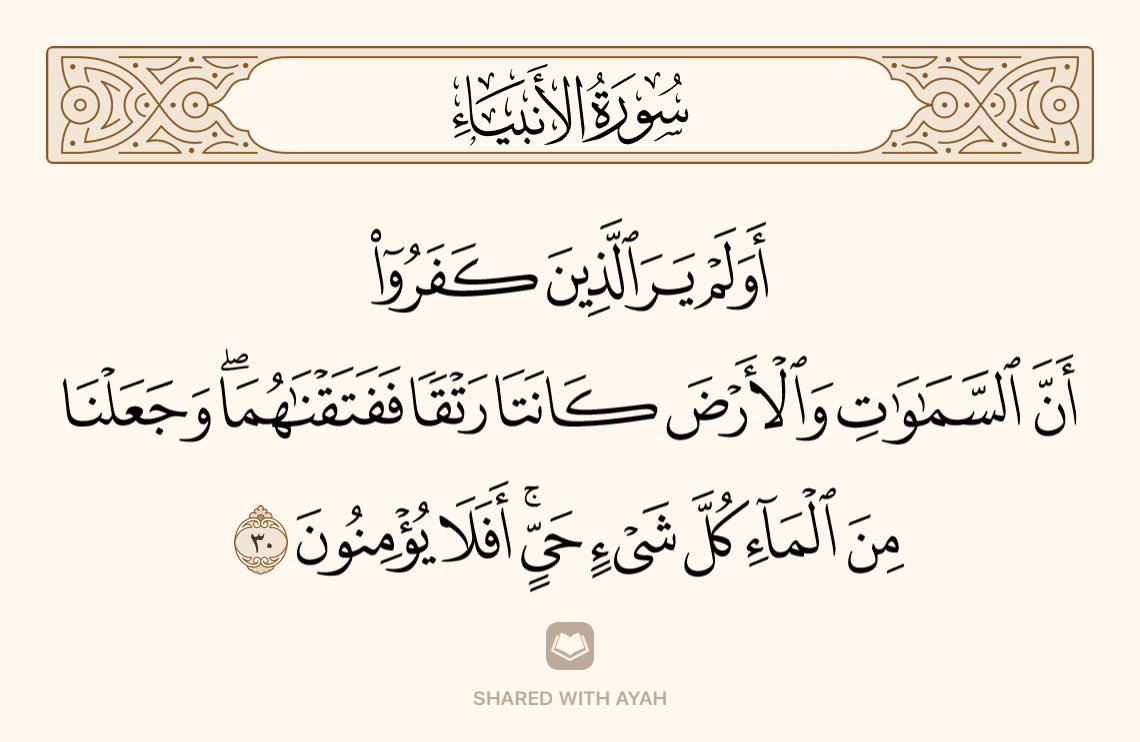 سُورَةُ الأَنبِيَاءِ
أَوَلَمْ يَرَ ٱلَّذِينَ كَفَرُوٓا۟
أَنَّ ٱلسَّمَـٰوَٰتِ وَٱلْأَرْضَ كَانَتَا رَتْقًا فَفَتَقْنَـٰهُمَا ۖ وَجَعَلْنَا
مِنَ ٱلْمَآءِ كُلَّ شَىْءٍ حَىٍّ ۚ أَفَلَا يُؤْمِنُونَ ٣٠
SHARED WITH AYAH